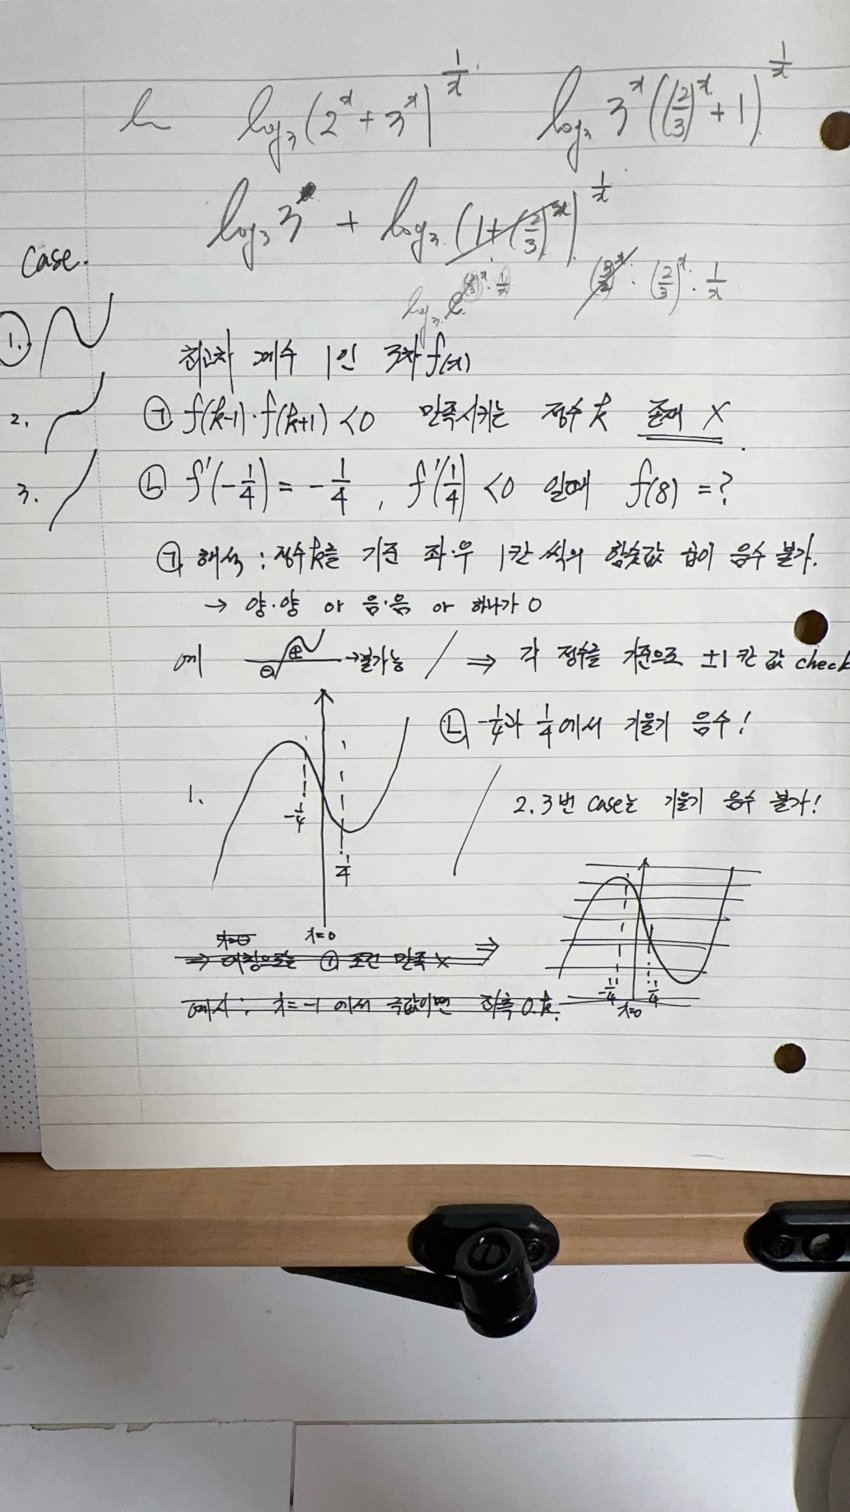 log₃(2^x + 3^x)^(1/x)   log₃ 3^x((2/3)^x + 1)^(1/x)
log₃ 3 + log₃ (1 + (2/3)^x)^(1/x)
(2/3)^x · 1/x
Case.
1.
2.
3.
최고차 계수 1인 3차 f(x)
㉠ f(k-1)·f(k+1) < 0 만족시키는 정수 k 존재 X
㉡ f'(-1/4) = -1/4 , f'(1/4) < 0 일때 f(8) = ?
㉠ 해석 : 정수 k를 기준 좌·우 1칸 씩의 함숫값 곱이 음수 불가.
→ 양·양 or 음·음 or 하나가 0
예 ⊖ ⊕ →불가능 / ⇒ 각 정수를 기준으로 ±1칸 값 check
㉡ -1/4과 1/4에서 기울기 음수!
1. -1/4 1/4 x=0
2.3번 case는 기울기 음수 불가!
x=0
⇒ ㉠ 조건 만족 X ⇒
예시 : x=-1 에서 극값이면 좌측 O.k.
-1/4 1/4 x=0